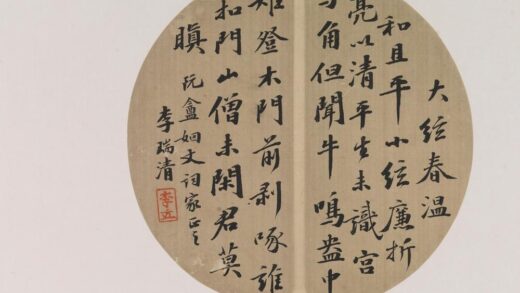 大絃春温
和且平小絃廉折
亮以清平生未識宮
与角但聞牛鳴盎中
雉登木門前剥啄誰
扣門山僧未閑君莫
瞋
阮盦姻丈詞家正之
李瑞清